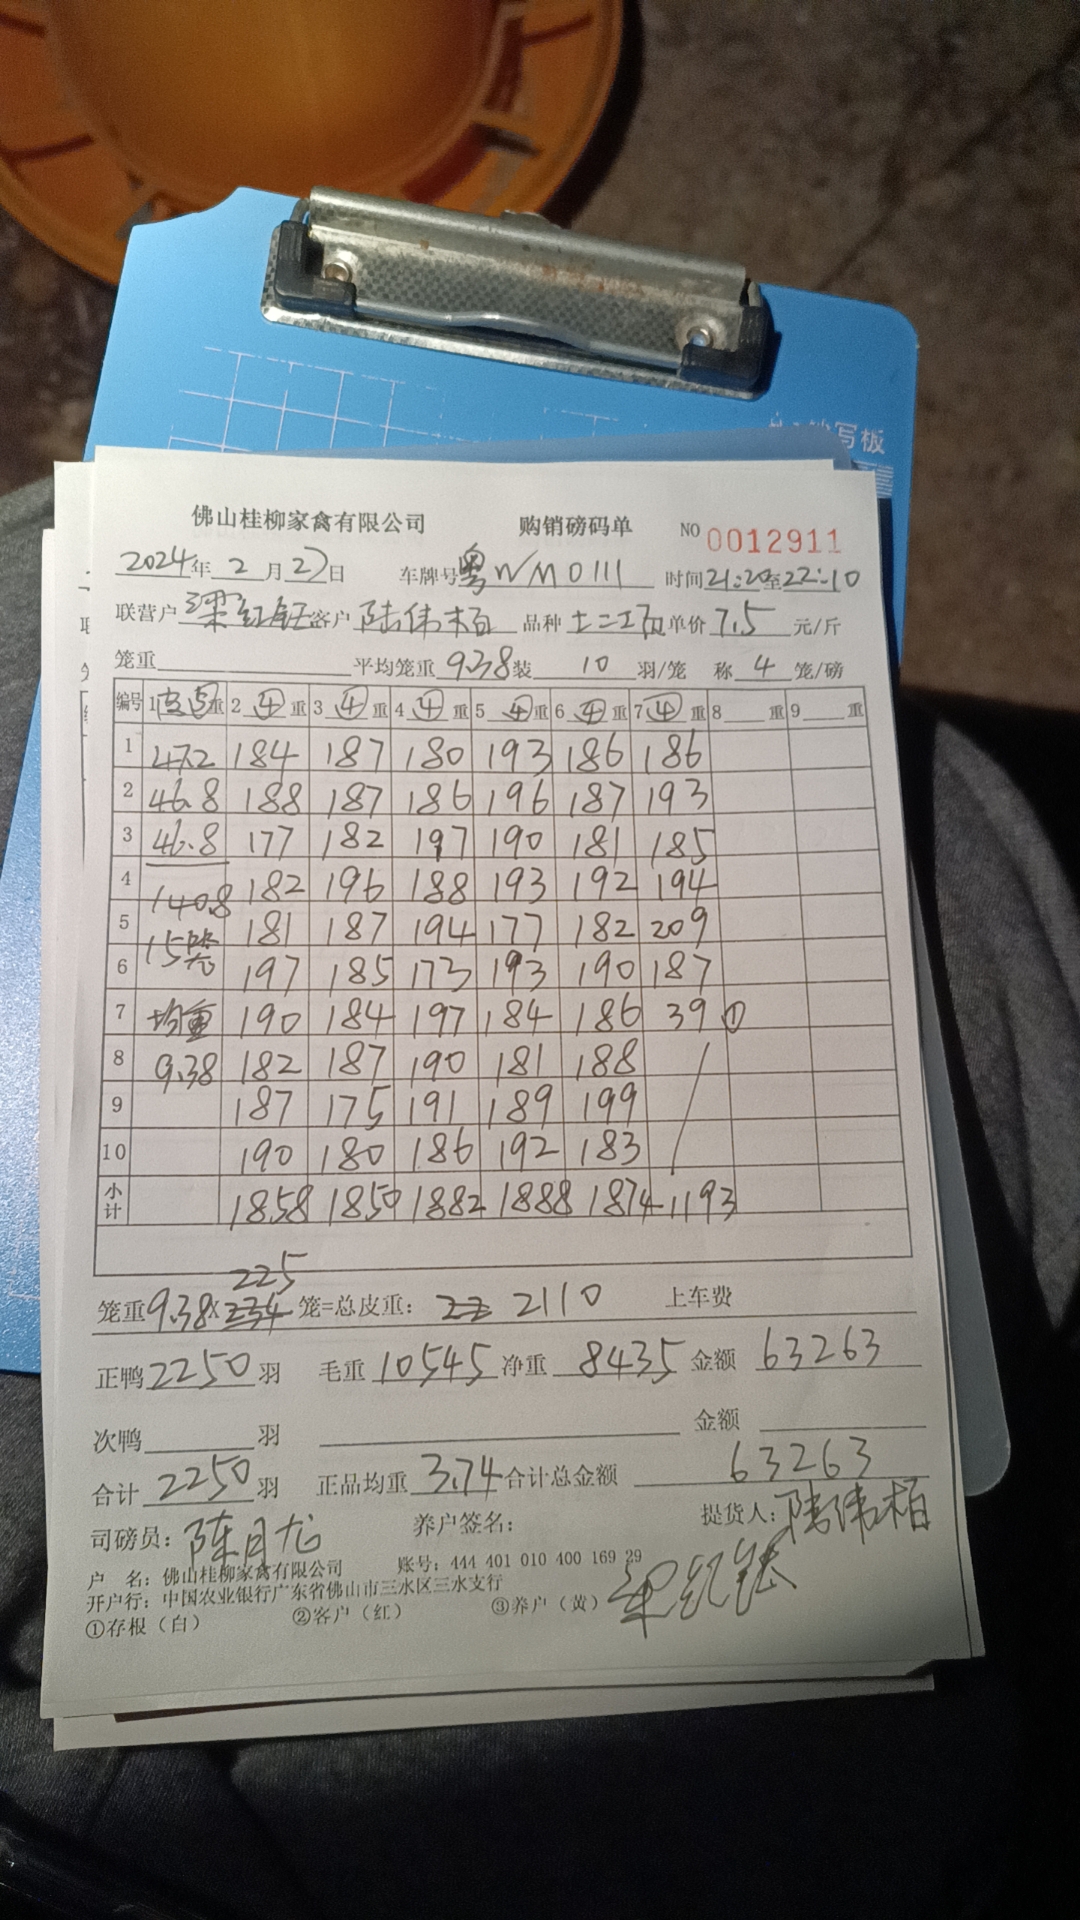 写板
佛山桂柳家禽有限公司 购销磅码单 NO 0012911
2024年 2 月 27 日 车牌号 粤WM0111 时间 21:20至22:10
联营户 客户 陆伟柏 品种 单价 7.5 元/斤
笼重 平均笼重 9.38 装 10 羽/笼 称 4 笼/磅
编号 1 重 2 ④ 重 3 ④ 重 4 ④ 重 5 ④ 重 6 ④ 重 7 ④ 重 8 重 9 重
1 47.2 184 187 180 193 186 186
2 46.8 188 187 186 196 187 193
3 46.8 177 182 197 190 181 185
4 140.8 182 196 188 193 192 194
5 15笼 181 187 194 177 182 209
6 197 185 173 193 190 187
7 均重 190 184 197 184 186 39 ①
8 9.38 182 187 190 181 188
9 187 175 191 189 199
10 190 180 186 192 183
小计 1858 1850 1882 1888 1874 1193
225
笼重 9.38 X 234 笼=总皮重: 2110 上车费
正鸭 2250 羽 毛重 10545 净重 8435 金额 63263
次鸭 羽 金额
合计 2250 羽 正品均重 3.74 合计总金额 63263
司磅员: 陈月龙 养户签名: 提货人: 陆伟柏
户 名: 佛山桂柳家禽有限公司 账号: 444 401 010 400 169 29
开户行: 中国农业银行广东省佛山市三水区三水支行
①存根（白） ②客户（红） ③养户（黄）